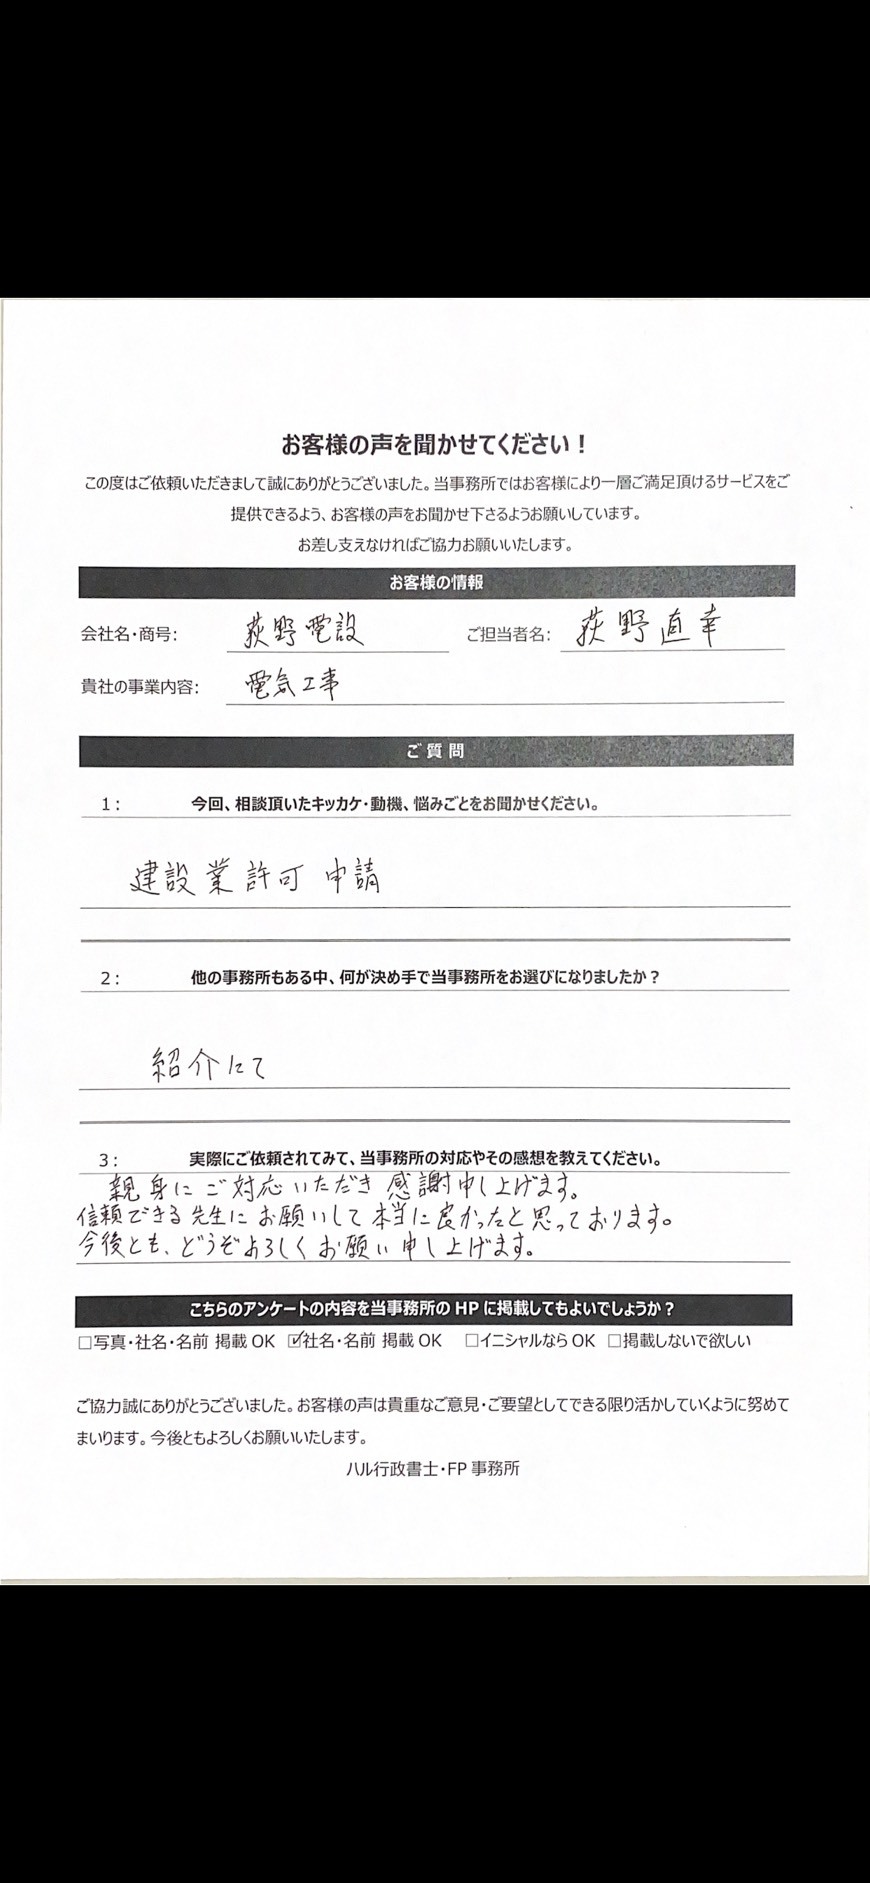 お客様の声を聞かせてください！
この度はご依頼いただきまして誠にありがとうございました。当事務所ではお客様により一層ご満足頂けるサービスをご
提供できるよう、お客様の声をお聞かせ下さるようお願いしています。
お差し支えなければご協力お願いいたします。
お客様の情報
会社名・商号： 荻野電設 ご担当者名： 荻野直幸
貴社の事業内容： 電気工事
ご質問
1： 今回、相談頂いたキッカケ・動機、悩みごとをお聞かせください。
建設業許可申請
2： 他の事務所もある中、何が決め手で当事務所をお選びになりましたか？
紹介にて
3： 実際にご依頼されてみて、当事務所の対応やその感想を教えてください。
親身にご対応いただき感謝申し上げます。
信頼できる先生にお願いして本当に良かったと思っております。
今後とも、どうぞよろしくお願い申し上げます。
こちらのアンケートの内容を当事務所の HP に掲載してもよいでしょうか？
□写真・社名・名前 掲載 OK ☑社名・名前 掲載 OK □イニシャルなら OK □掲載しないで欲しい
ご協力誠にありがとうございました。お客様の声は貴重なご意見・ご要望としてできる限り活かしていくように努めて
まいります。今後ともよろしくお願いいたします。
ハル行政書士・FP 事務所